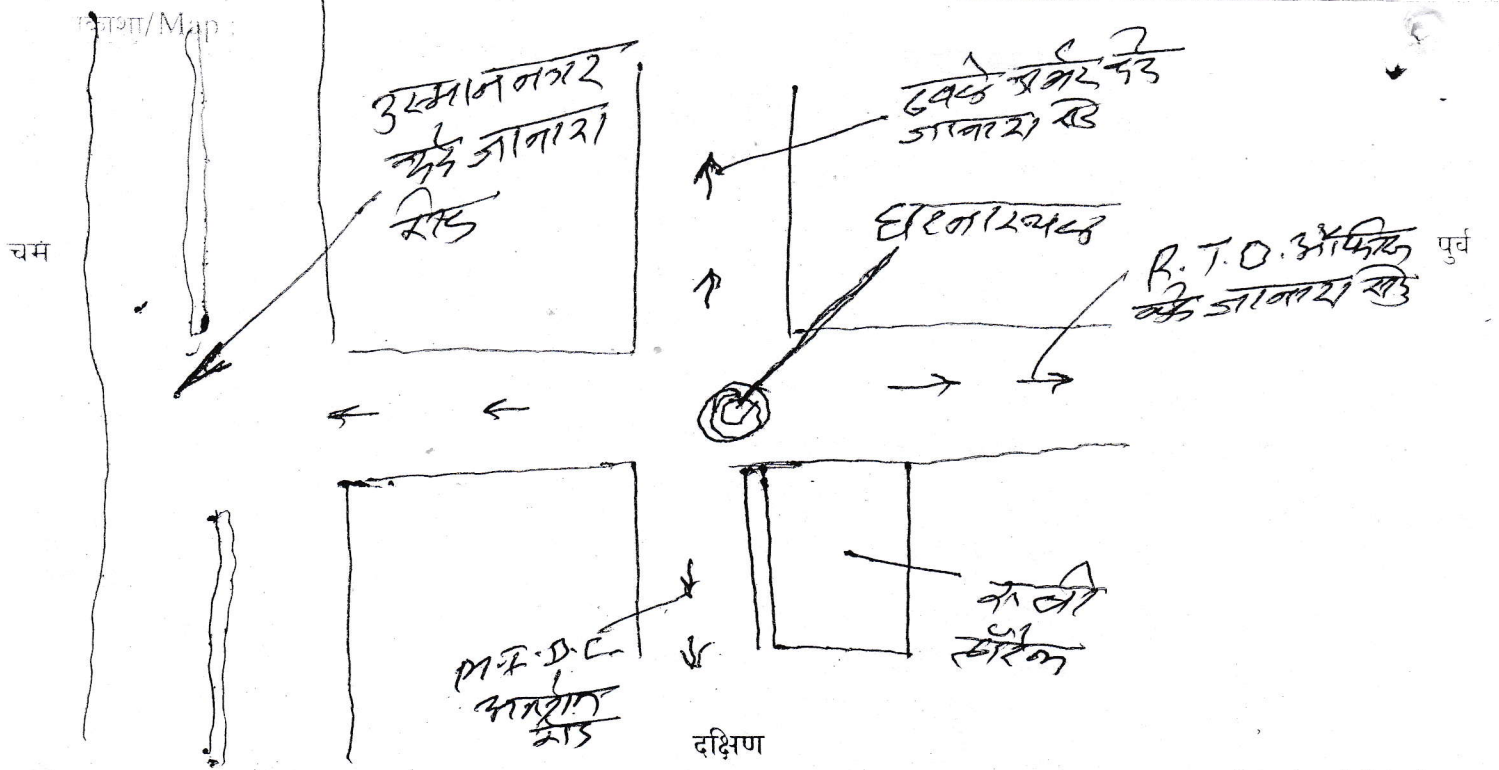 नकाशा/Map :
उस्मान नगर
कडे जानारा
रोड
ढवळे कॉर्नर कडे
जानारा रोड
घटनास्थळ
चम
R.T.O. ऑफिस
कडे जानारा रोड
पुर्व
M.I.D.C.
अंतर्गत
रोड
रुबी
हॉटेल
दक्षिण